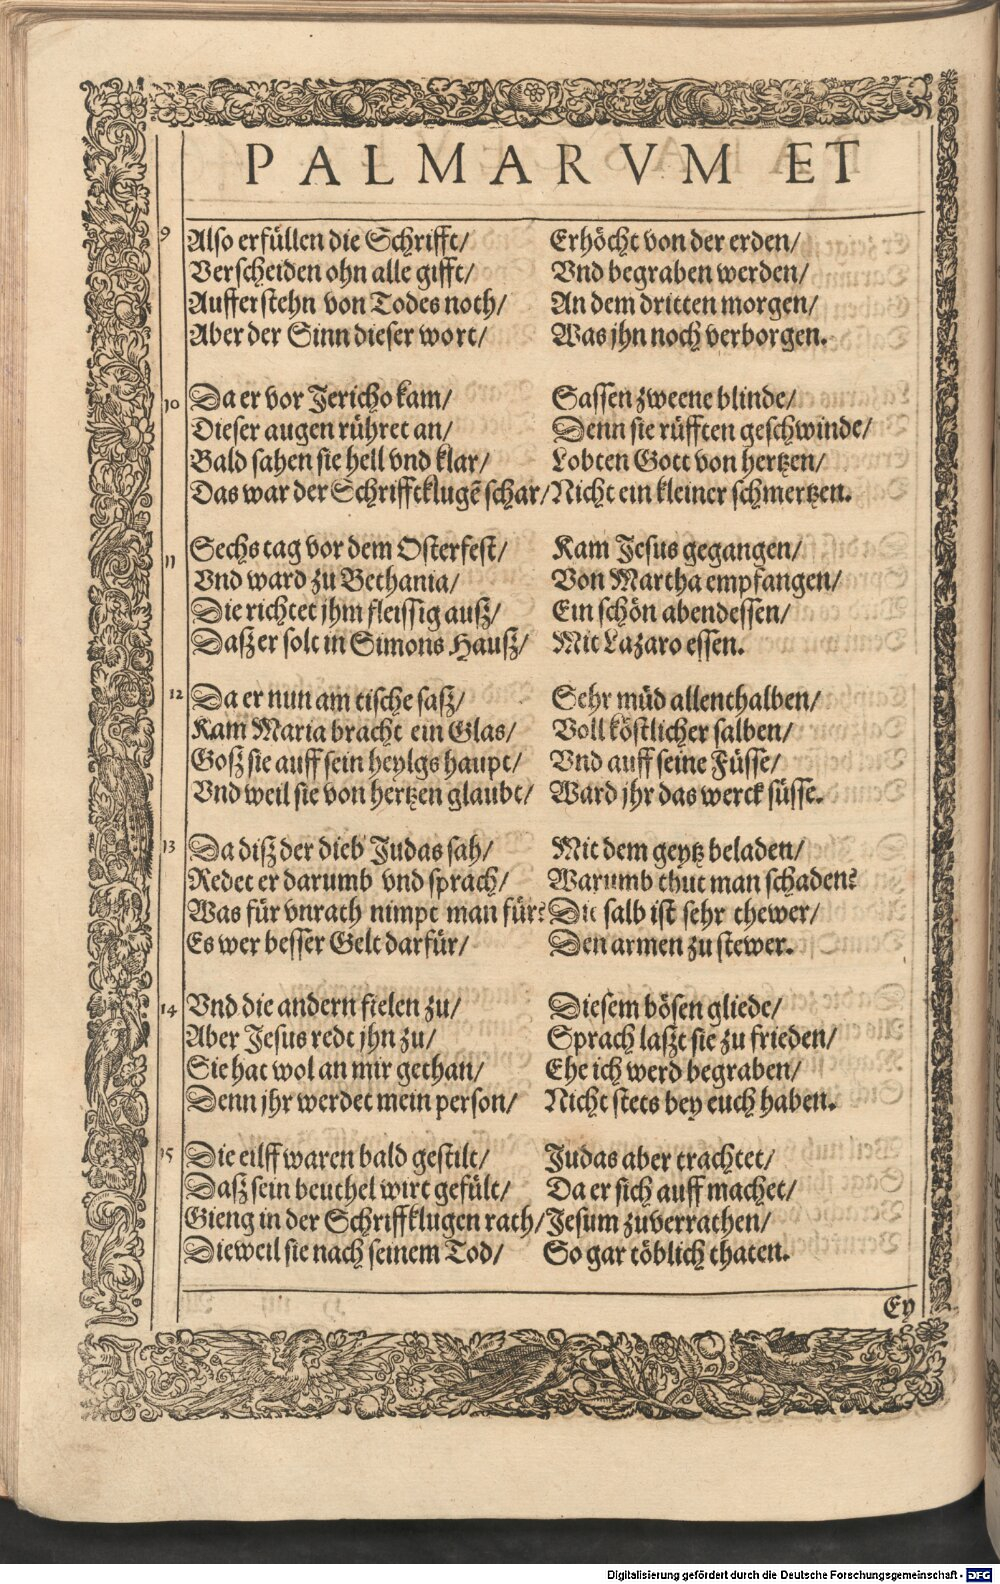 PALMARVM ET
9 Also erfüllen die Schrifft/ Erhöcht von der erden/
Verscheiden ohn alle gifft/ Vnd begraben werden/
Aufferstehn von Todes noth/ An dem dritten morgen/
Aber der Sinn dieser wort/ Was jhn noch verborgen.
10 Da er vor Jericho kam/ Sassen zweene blinde/
Dieser augen rühret an/ Denn sie rüfften geschwinde/
Bald sahen sie hell vnd klar/ Lobten Gott von hertzen/
Das war der Schrifftklugẽ schar/ Nicht ein kleiner schmertzen.
11 Sechs tag vor dem Osterfest/ Kam Jesus gegangen/
Vnd ward zu Bethania/ Von Martha empfangen/
Die richtet jhm fleissig ausz/ Ein schön abendessen/
Dasz er solt in Simons Hausz/ Mit Lazaro essen.
12 Da er nun am tische sasz/ Sehr müd allenthalben/
Kam Maria bracht ein Glas/ Voll köstlicher salben/
Gosz sie auff sein heylgs haupt/ Vnd auff seine Füsse/
Vnd weil sie von hertzen glaubt/ Ward jhr das werck süsse.
13 Da disz der dieb Judas sah/ Mit dem geytz beladen/
Redet er darumb vnd sprach/ Warumb thut man schaden?
Was für vnrath nimpt man für? Die salb ist sehr thewer/
Es wer besser Gelt darfür/ Den armen zu stewer.
14 Vnd die andern fielen zu/ Diesem bösen gliede/
Aber Jesus redt jhn zu/ Sprach laszt sie zu frieden/
Sie hat wol an mir gethan/ Ehe ich werd begraben/
Denn jhr werdet mein person/ Nicht stets bey euch haben.
15 Die eilff waren bald gestilt/ Judas aber trachtet/
Dasz sein beuthel wirt gefült/ Da er sich auff machet/
Gieng in der Schriffklugen rath/ Jesum zuverrathen/
Dieweil sie nach seinem Tod/ So gar töblich thaten.
Ey
Digitalisierung gefördert durch die Deutsche Forschungsgemeinschaft - DFG